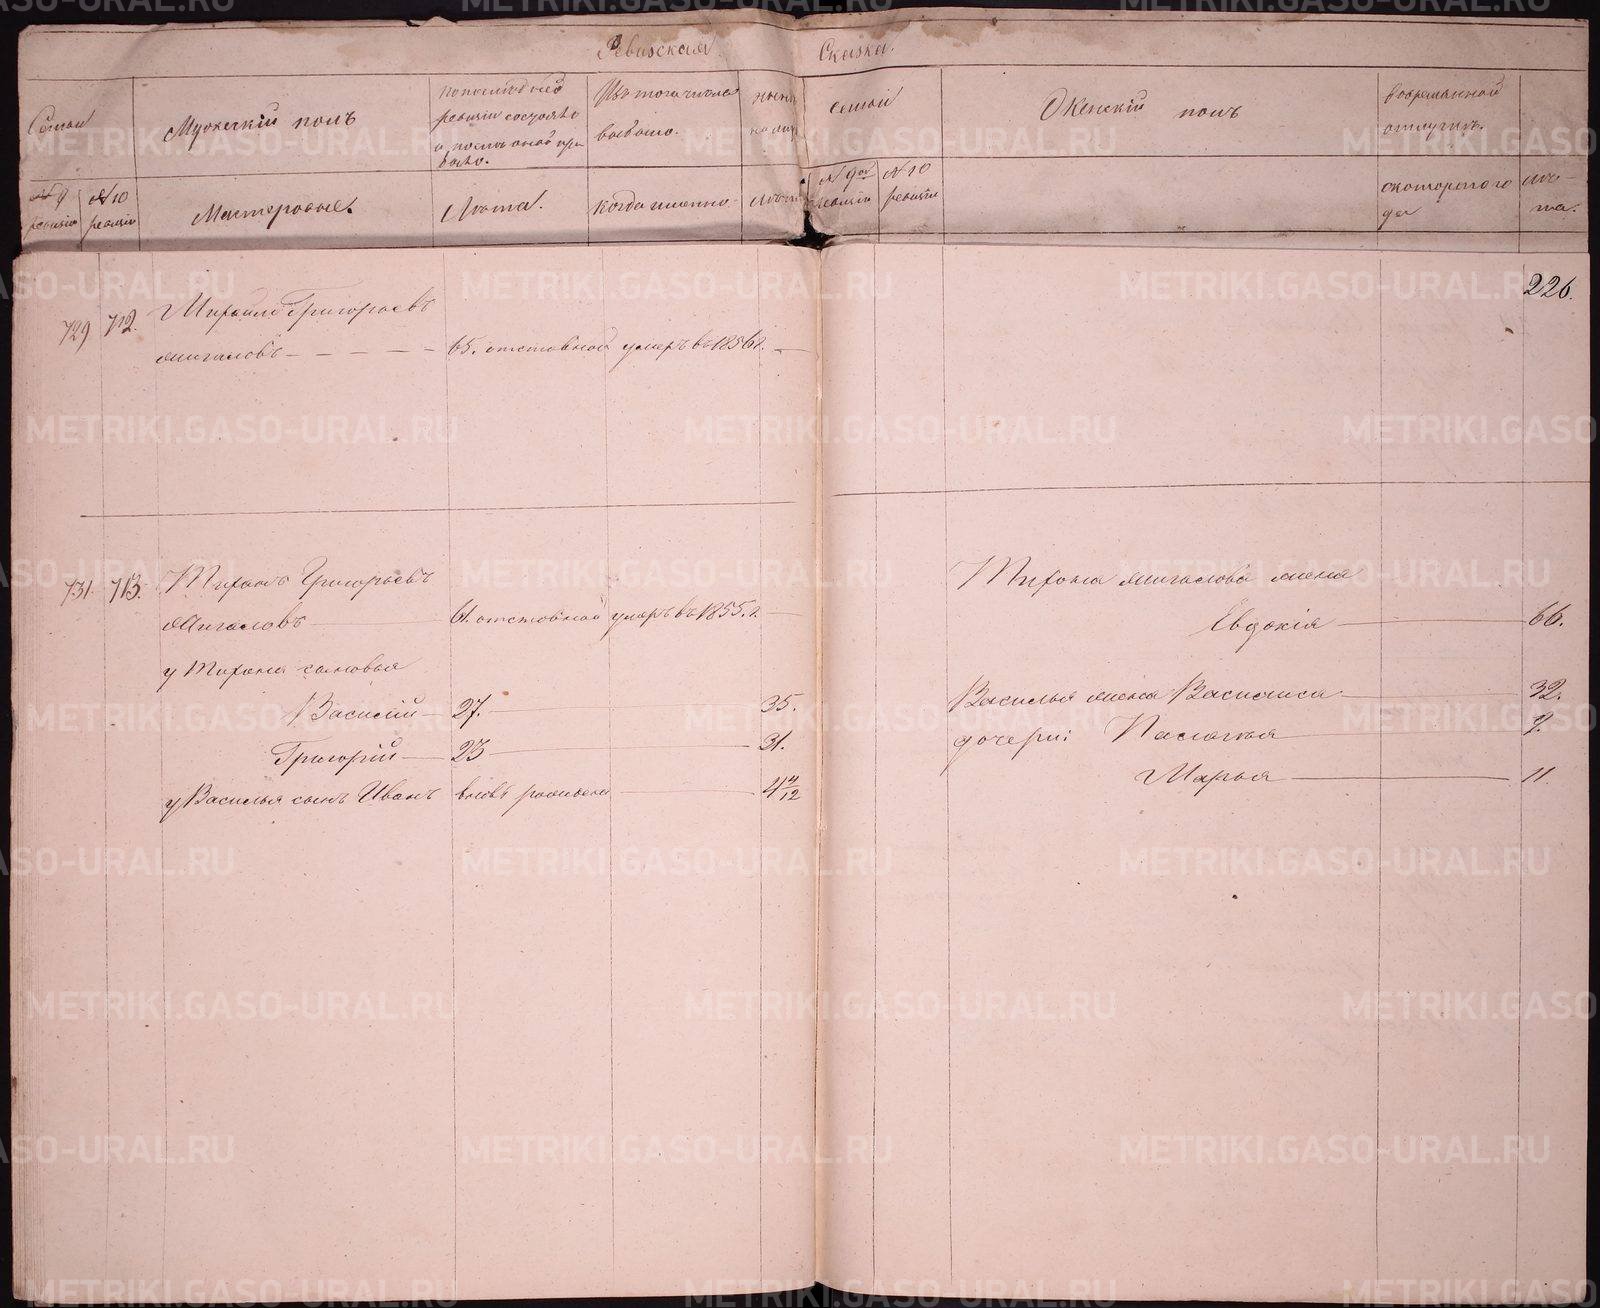 Ревизская Сказка.
Семьи
Мужескій полъ
По последней ревизіи состояло и после оной прибыло.
Изъ того числа выбыло.
ныне на лицо
семьи
Женскій полъ
во временной отлучкѣ.
№ 9 ревизіи
№ 10 ревизіи
Мастеровые.
Лѣта.
когда именно.
лѣта
№ 9ой ревизіи
№ 10 ревизіи
съ котораго года
лѣта.
226.
729 712. Михайло Григорьевъ
Мигаловъ 65. отставной умеръ въ 1856 г.
731. 713. Тихонъ Григорьевъ
Мигаловъ 61. отставной умеръ въ 1855. г.
у Тихона сыновья
Василий 27. 35.
Григорій 23 31.
у Василья сынъ Иванъ вновь рожденъ 4 4/12
Тихона Мигалова жена
Евдокія 66.
Василья жена Василиса 32.
дочери: Пелагея 7.
Марья 11.
METRIKI.GASO-URAL.RU